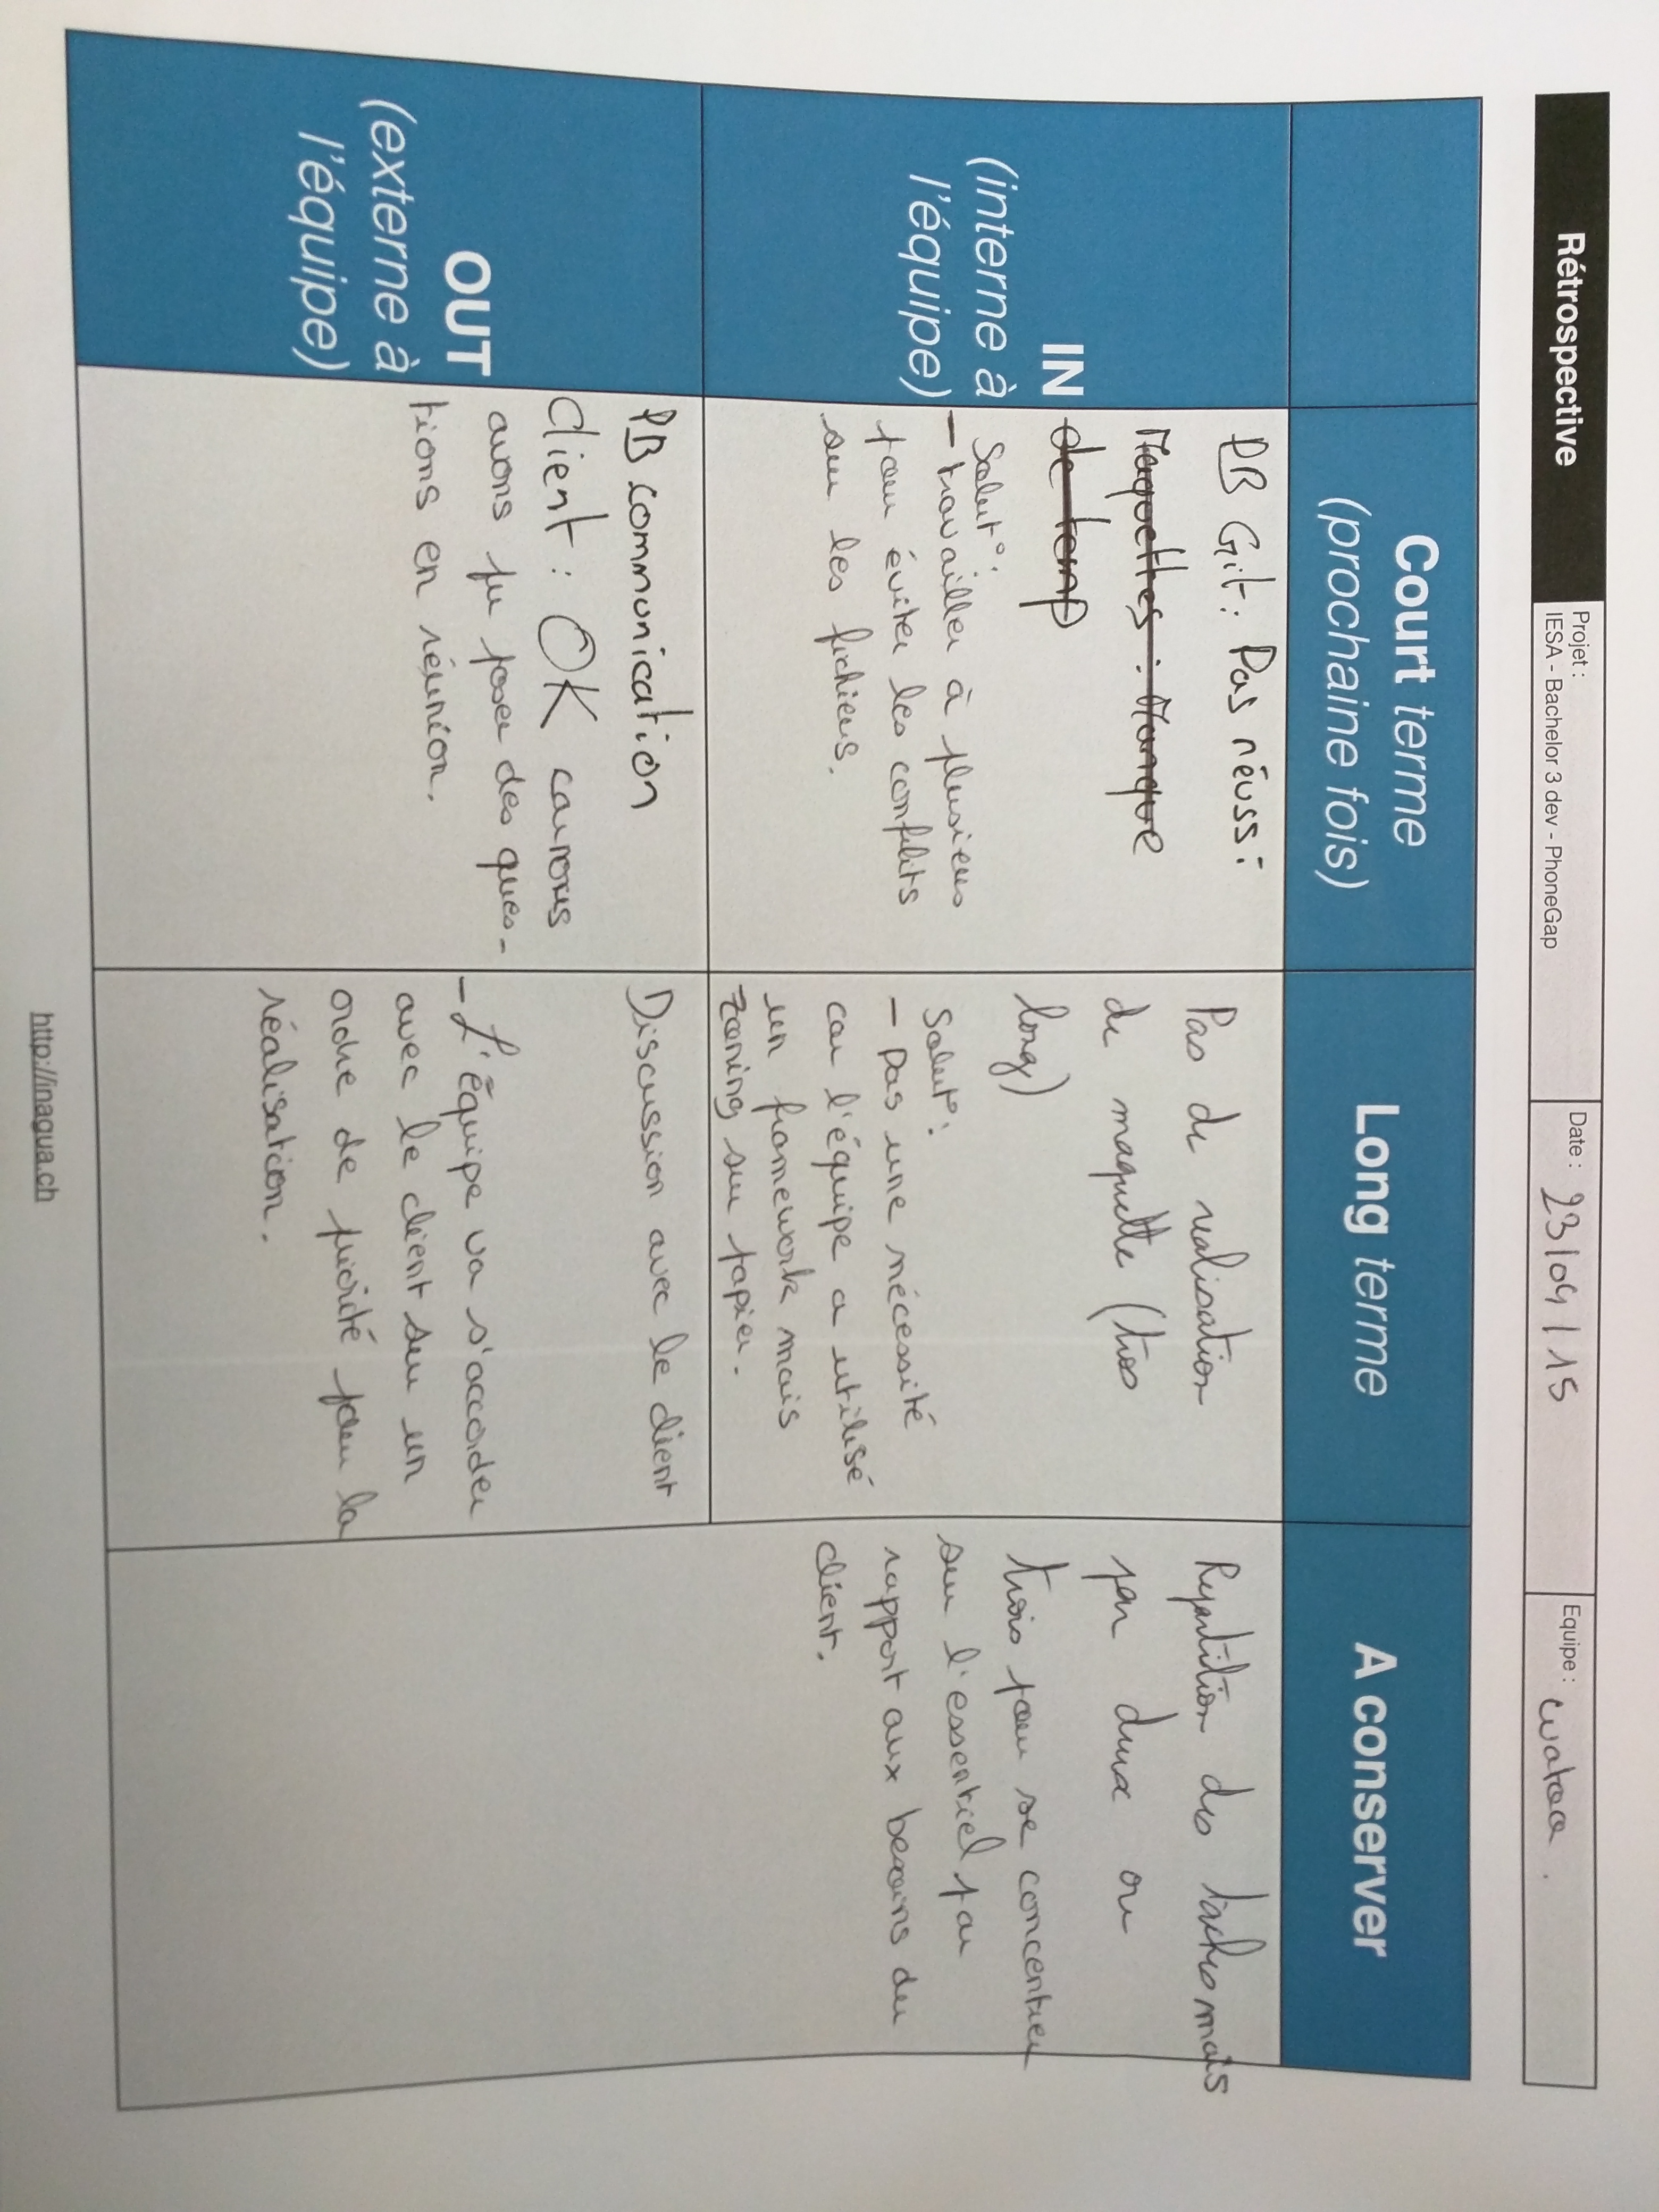 Rétrospective
Projet :
IESA - Bachelor 3 dev - PhoneGap
Date : 23/09/15
Equipe :
Court terme
(prochaine fois)
Long terme
A conserver
IN
(interne à
l'équipe)
PB Git : Pas réussi
Maquettes : Manque
de temp
Solut° :
- travailler à plusieurs
pour éviter les conflits
sur les fichiers.
Pas de realisation
de maquette (tros
long)
Solut° :
- Pas une nécessité
car l'équipe a utilisé
un framework mais
zoning sur papier.
Repartition des taches mais
par deux ou
trois pour se concentrer
sur l'essentiel par
rapport aux besoins du
client.
OUT
(externe à
l'équipe)
PB communication
client : OK car nous
avons pu poser des ques-
tions en réunion.
Discussion avec le client
- L'équipe va s'accorder
avec le client sur un
ordre de priorité pour la
réalisation.
http://inaqua.ch